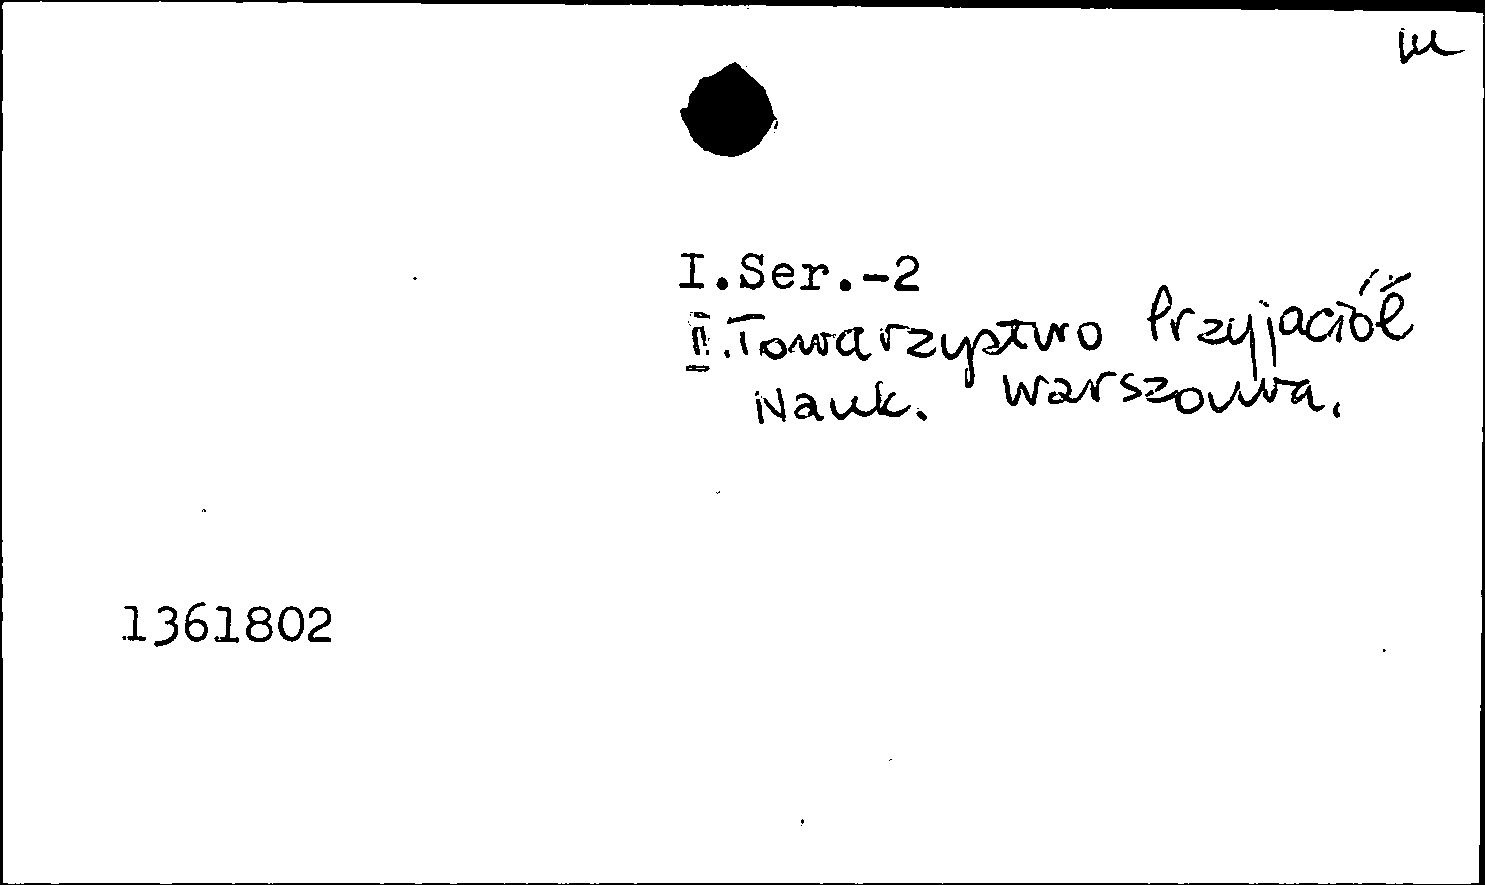 I.Ser.-2
II.Towarzystwo Przyjaciół
Nauk. Warszawa.
1361802